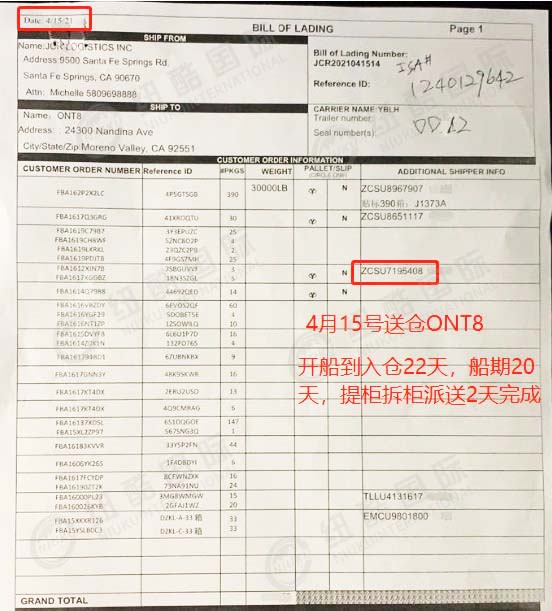 Date: 4/15/21
BILL OF LADING
Page 1
SHIP FROM
Name:JCR LOGISTICS INC
Address:9500 Santa Fe Springs Rd.
Santa Fe Springs, CA 90670
Attn: Michelle 5809698888
Bill of Lading Number:
JCR2021041514
ISA#
Reference ID:
1240129642
SHIP TO
Name: ONT8
Address : 24300 Nandina Ave
City/State/Zip:Moreno Valley, CA 92551
CARRIER NAME:YBLH
Trailer number:
Seal number(s):
CUSTOMER ORDER INFORMATION
CUSTOMER ORDER NUMBER Reference ID #PKGS WEIGHT PALLET/SLIP (CIRCLE ONE) ADDITIONAL SHIPPER INFO
FBA162P2X2LC 4P5GTSGB 390 30000LB Y N ZCSU8967907
贴标390箱：J1373A
FBA1617Q3GRG 41XROQTU 30 Y N ZCSU8651117
FBA1619C79B7 3Y3EPUZC 25
FBA1619CH8WF 52NCBO2P 4
FBA1619LXRXL 23QZC2PB 2
FBA1619PDJTB 4F9GS7MH 25
FBA1612XIN7B 7SBGUVVF 3 Y N ZCSU7195408
FBA1617XGGBZ 18N3S2GL 5
FBA1614Q79B8 44692QED 14 Y N
FBA1616V8ZDY 6EVOS2QF 60
FBA1616YGF29 SDOBET5E 4
FBA1616NT1ZP 1ZSOWILQ 10
FBA1615DVYF8 6L6U1P7D 16
FBA1614Z0X1N 132PD765 4
FBA1617948D1 67UBNKBX 9
FBA1617GNN3Y 48K9SKWR 16
FBA1617XT4DX 2ERU2USD 13
FBA1617XT4DX 4Q9CMRAG 6
FBA16137XDSL 651OQGOE 147
FBA15XL2ZP97 S67SNG3Q 1
FBA16183KVVR 33YSP2FN 44
FBA1606YK265 1F4DBDYI 6
FBA1617FCYDP 8CFWNZXX 16
FBA16190ZTZX 73NA91NU 24
FBA16000PL23 3MG8WMGW 15 TLLU4131617
FBA160026KYB 2GFAJ1WZ 20
FBA15XKXR126 DZKL-A-33 箱 33 EMCU9801800
FBA15YSLB0C3 DZKL-C-33 箱 33
4月15号送仓ONT8
开船到入仓22天，船期20
天，提柜拆柜派送2天完成
GRAND TOTAL
纽酷国际
NIUKU INTERNATIONAL